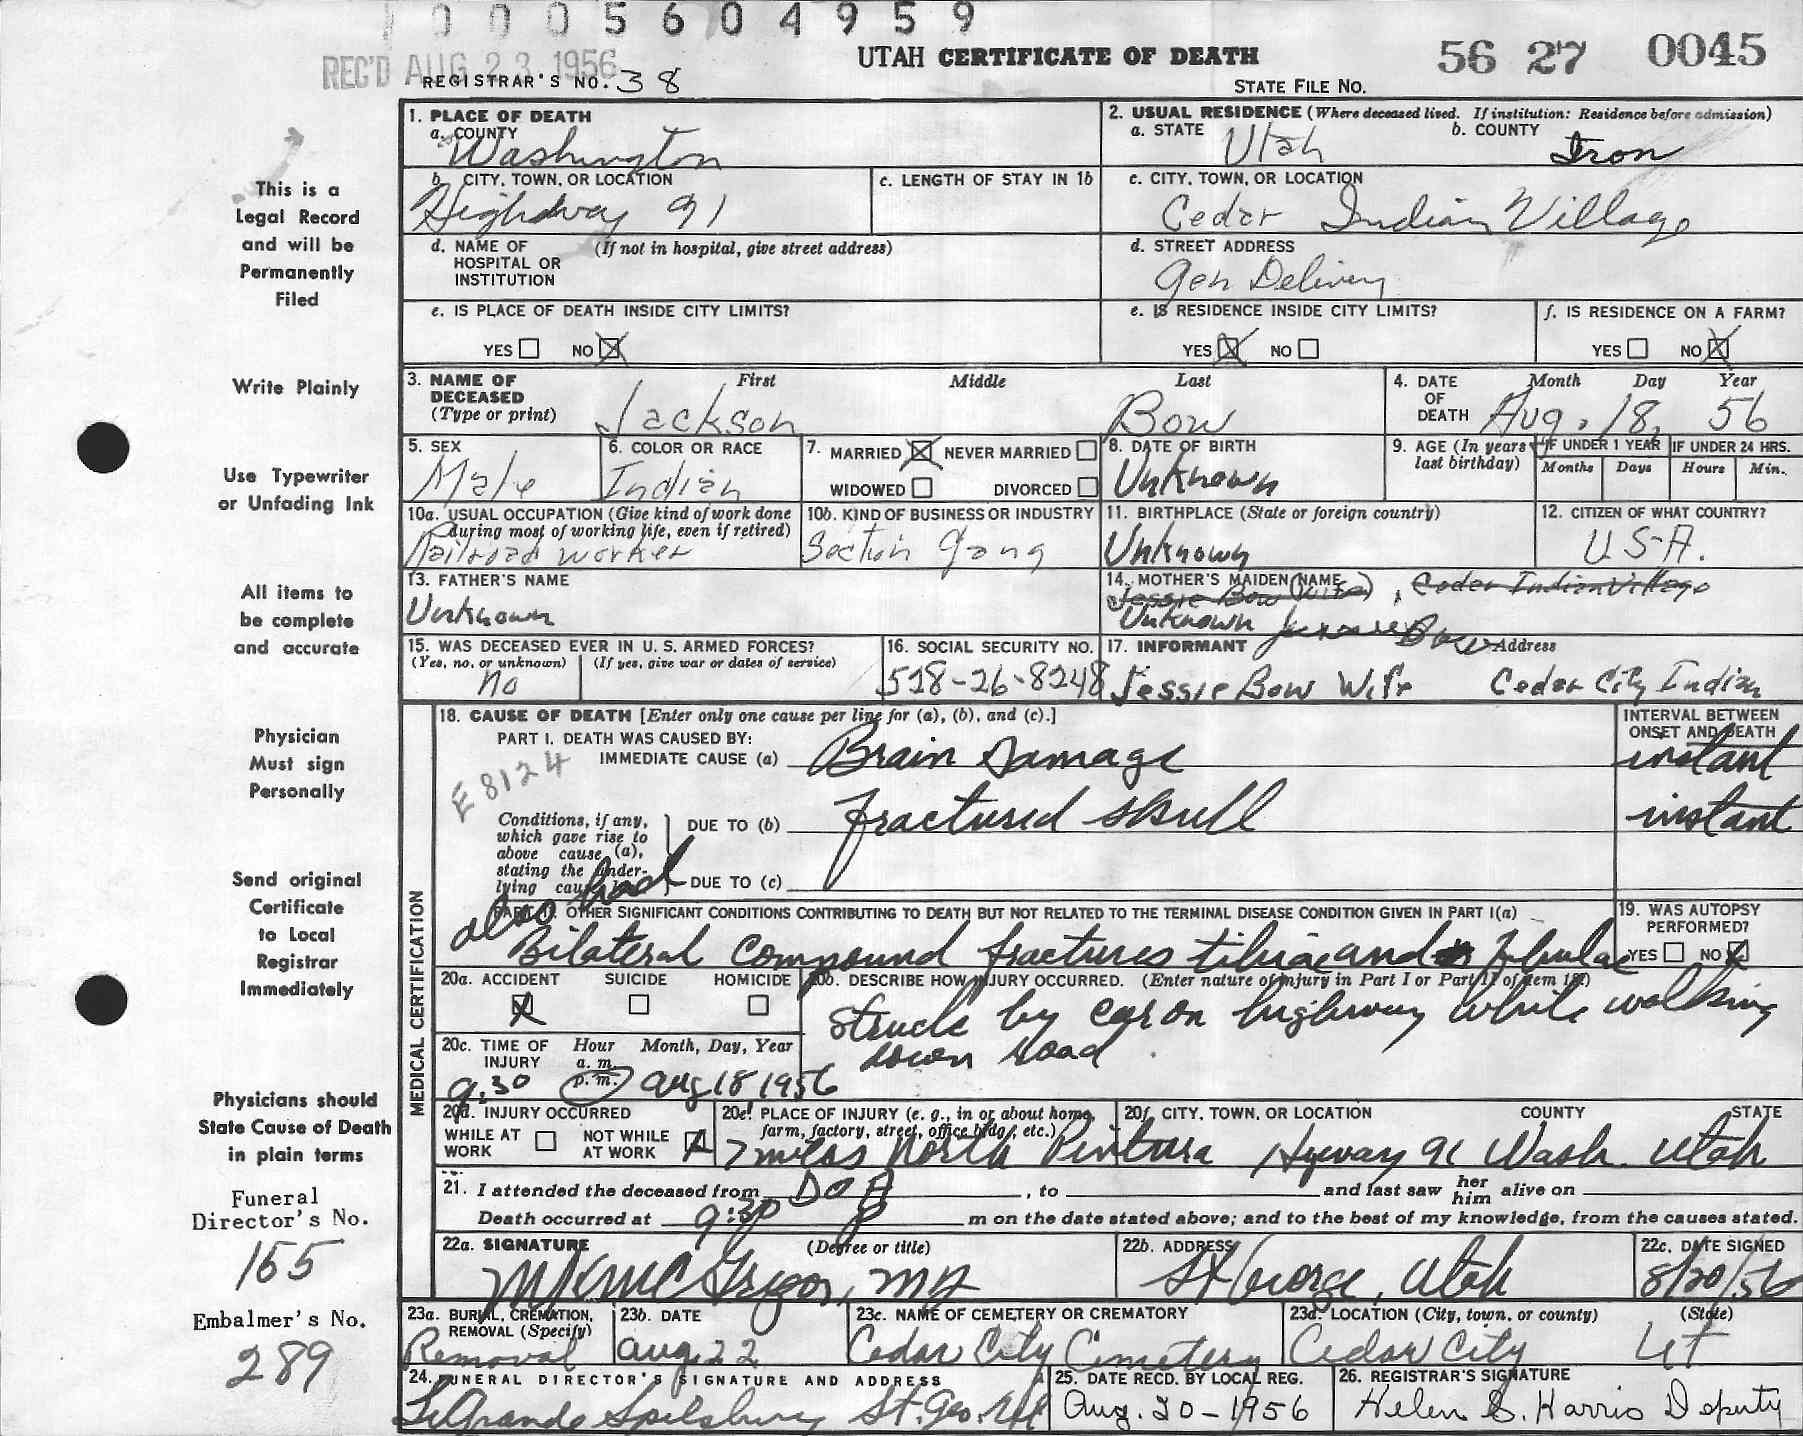 0005604959
REC'D AUG 23 1956
UTAH CERTIFICATE OF DEATH
56 27 0045
REGISTRAR'S NO. 38
STATE FILE NO.
This is a
Legal Record
and will be
Permanently
Filed
Write Plainly
Use Typewriter
or Unfading Ink
All items to
be complete
and accurate
Physician
Must sign
Personally
Send original
Certificate
to Local
Registrar
Immediately
Physicians should
State Cause of Death
in plain terms
Funeral
Director's No.
155
Embalmer's No.
289
1. PLACE OF DEATH
a. COUNTY
Washington
2. USUAL RESIDENCE (Where deceased lived. If institution: Residence before admission)
a. STATE Utah b. COUNTY Iron
b. CITY, TOWN, OR LOCATION
Highway 91
c. LENGTH OF STAY IN 1b
c. CITY, TOWN, OR LOCATION
Cedar Indian Village
d. NAME OF (If not in hospital, give street address)
HOSPITAL OR
INSTITUTION
d. STREET ADDRESS
Gen Delivery
e. IS PLACE OF DEATH INSIDE CITY LIMITS?
YES NO X
e. IS RESIDENCE INSIDE CITY LIMITS?
YES X NO
f. IS RESIDENCE ON A FARM?
YES NO X
3. NAME OF DECEASED (Type or print)
First Middle Last
Jackson Bow
4. DATE OF DEATH
Month Day Year
Aug. 18, 56
5. SEX
Male
6. COLOR OR RACE
Indian
7. MARRIED X NEVER MARRIED
WIDOWED DIVORCED
8. DATE OF BIRTH
Unknown
9. AGE (In years last birthday)
IF UNDER 1 YEAR
Months Days
IF UNDER 24 HRS.
Hours Min.
10a. USUAL OCCUPATION (Give kind of work done
during most of working life, even if retired)
Railroad worker
10b. KIND OF BUSINESS OR INDUSTRY
Section Gang
11. BIRTHPLACE (State or foreign country)
Unknown
12. CITIZEN OF WHAT COUNTRY?
U.S.A.
13. FATHER'S NAME
Unknown
14. MOTHER'S MAIDEN NAME
Jessie Bow (Wife), Cedar Indian Village
Unknown
15. WAS DECEASED EVER IN U.S. ARMED FORCES?
(Yes, no, or unknown) (If yes, give war or dates of service)
no
16. SOCIAL SECURITY NO.
528-26-8248
17. INFORMANT Address
Jessie Bow Wife Cedar City Indian
MEDICAL CERTIFICATION
18. CAUSE OF DEATH [Enter only one cause per line for (a), (b), and (c).]
PART I. DEATH WAS CAUSED BY:
IMMEDIATE CAUSE (a) Brain Damage
INTERVAL BETWEEN
ONSET AND DEATH
instant
E 8124
Conditions, if any,
which gave rise to
above cause (a),
stating the under-
lying cause last.
DUE TO (b) fractured skull
instant
DUE TO (c)
also had
PART II. OTHER SIGNIFICANT CONDITIONS CONTRIBUTING TO DEATH BUT NOT RELATED TO THE TERMINAL DISEASE CONDITION GIVEN IN PART I(a)
Bilateral Compound fractures tibiae and Fibulae
19. WAS AUTOPSY
PERFORMED?
YES NO X
20a. ACCIDENT SUICIDE HOMICIDE
X
20b. DESCRIBE HOW INJURY OCCURRED. (Enter nature of injury in Part I or Part II of item 18.)
Struck by car on highway while walking
down road.
20c. TIME OF INJURY
Hour Month, Day, Year
a. m.
9:30 p. m. Aug 18 1956
20d. INJURY OCCURRED
WHILE AT WORK NOT WHILE AT WORK X
20e. PLACE OF INJURY (e. g., in or about home,
farm, factory, street, office bldg., etc.)
20f. CITY, TOWN, OR LOCATION COUNTY STATE
7 miles North Pintura Hyway 91 Wash. Utah
21. I attended the deceased from DOA, to and last saw her him alive on
Death occurred at 9:30 P m on the date stated above; and to the best of my knowledge, from the causes stated.
22a. SIGNATURE (Degree or title)
McGregor, MD
22b. ADDRESS
St George, Utah
22c. DATE SIGNED
8/20/56
23a. BURIAL, CREMATION,
REMOVAL (Specify)
Removal
23b. DATE
Aug. 22
23c. NAME OF CEMETERY OR CREMATORY
Cedar City Cemetery
23d. LOCATION (City, town, or county) (State)
Cedar City Ut
24. FUNERAL DIRECTOR'S SIGNATURE AND ADDRESS
LeGrande Spilsbury St. Geo. Ut
25. DATE RECD. BY LOCAL REG.
Aug. 20-1956
26. REGISTRAR'S SIGNATURE
Helen S. Harris Deputy